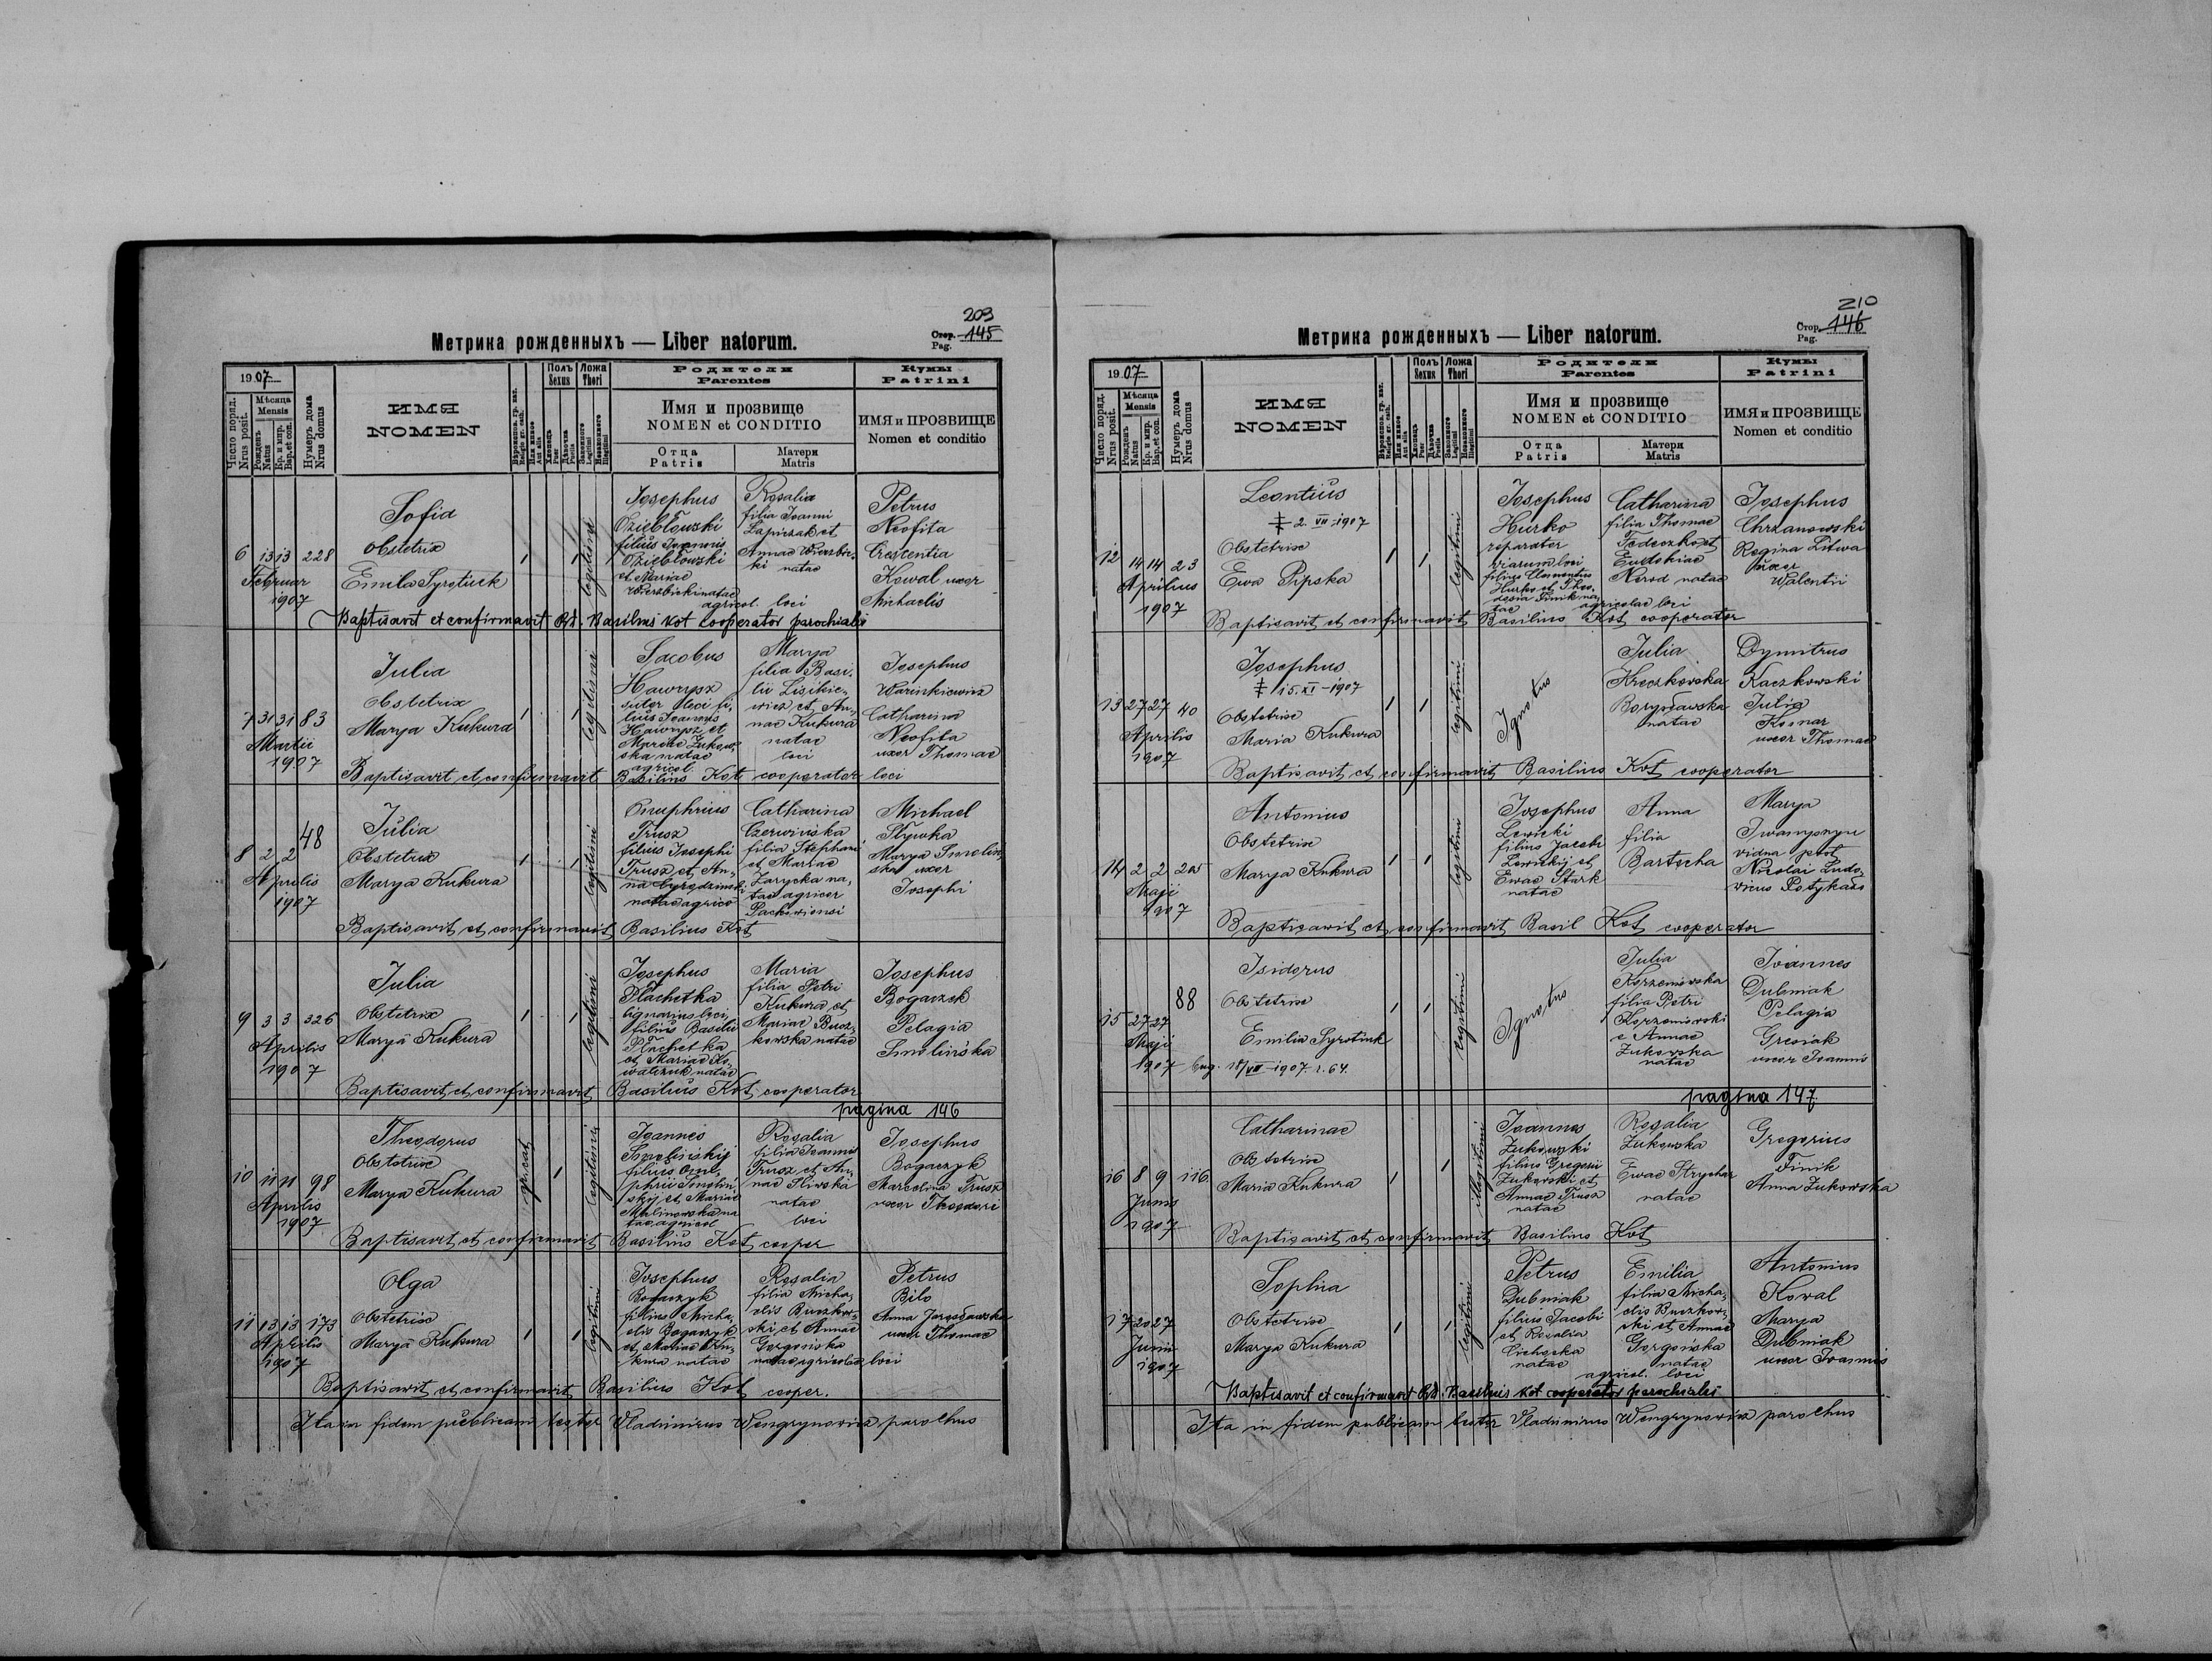 209
Метрика рожденныхъ — Liber natorum.
Стор. 145
Pag.
1907
Число поряд.
Nrus posit.
Мѣсяца
Mensis
Рожденъ
Natus
Кр. и мир.
Bap. et con.
Нумеръ дома
Nrus domus
ИМЯ
NOMEN
Религ. gr. cath.
Полъ
Sexus
Хлопецъ
Puer
Дѣвочка
Puella
Ложа
Thori
Законного
Legitimi
Незаконного
Illegitimi
Родители
Parentes
Имя и прозвище
NOMEN et CONDITIO
Отца
Patris
Матери
Matris
Кумы
Patrini
ИМЯ и ПРОЗВИЩЕ
Nomen et conditio
6 13 13 228
Februar
1907
Sofia
Obstetrix
Emila Syrotiuk
1 1 legitimi
Josephus
Dziebłowski
filius Joannis
Dziebłowski
et Mariae
Wierzbicki natae
agricol. loci
Rosalia
filia Joanni
Lapiczak et
Annae Wierzbic-
ki natae
Petrus
Neofita
Crescentia
Kowal uxor
Michaelis
Baptisavit et confirmavit Rd. Basilius Kot Cooperator parochialis
7 31 31 83
Martii
1907
Julia
Obstetrix
Marya Kukura
1 1 legitimi
Jacobus
Hawrysz
sutor loci fi-
lius Joannis
Hawrysz et
Mariae Zukow-
ska natae
agricol.
Marya
filia Basi-
lii Lisikie-
wicz et An-
nae Kukura
natae
loci
Josephus
Warinkiewicz
Catharina
Neofita
uxor Thomae
Baptisavit et confirmavit Basilius Kot cooperator loci
8 2 2 48
Aprilis
1907
Julia
Obstetrix
Marya Kukura
1 1 legitimi
Onuphrius
Trusz
filius Josephi
Trusz et An-
na
natae agrico
Catharina
Czerwinska
filia Stephani
et Mariae
Zarycka na-
tae agricol
Michael
Slywka
Marya Smolin-
ska uxor
Josephi
Baptisavit et confirmavit Basilius Kot
9 3 3 326
Aprilis
1907
Julia
Obstetrix
Marya Kukura
1 1 legitimi
Josephus
Płachetka
lignarius loci,
filius Basilii
Płachetka
et Mariae Ko-
walczuk natae
Maria
filia Petri
Kukura et
Mariae Bucz-
kowska natae
Josephus
Bogaczek
Pelagia
Smolińska
Baptisavit et confirmavit Basilius Kot cooperator
pagina 146
10 11 11 98
Aprilis
1907
Theodorus
Obstetrix
Marya Kukura
1 legitimi
Joannes
Smolinskij
filius Onu-
phrii Smolin-
skij et Mariae
Malinowska na
tae agricol
Rosalia
filia Joannis
Trusz et An-
nae Sliwska
natae
loci
Josephus
Bogaczyk
Marcelina Trusz
uxor Theodori
Baptisavit et confirmavit Basilius Kot cooper
11 13 13 173
Aprilis
1907
Olga
Obstetrix
Marya Kukura
1 1 legitimi
Josephus
Bogaczyk
filius Micha-
elis Bogaczyk
et Mariae Ku-
kura natae
Rosalia
filia Micha-
elis Buczkow-
ski et Annae
Gorgonska
natae, agricolae loci
Petrus
Bilo
Anna Jarosławska
uxor Thomae
Baptisavit et confirmavit Basilius Kot cooper.
Ita in fidem publicam testor Vladimirus Wengrynowicz parochus
210
Метрика рожденныхъ — Liber natorum.
Стор. 146
Pag.
1907
Число поряд.
Nrus posit.
Мѣсяца
Mensis
Рожденъ
Natus
Кр. и мир.
Bap. et con.
Нумеръ дома
Nrus domus
ИМЯ
NOMEN
Полъ
Sexus
Хлопецъ
Puer
Дѣвочка
Puella
Ложа
Thori
Законного
Legitimi
Незаконного
Illegitimi
Родители
Parentes
Имя и прозвище
NOMEN et CONDITIO
Отца
Patris
Матери
Matris
Кумы
Patrini
ИМЯ и ПРОЗВИЩЕ
Nomen et conditio
12 14 14 23
Aprilius
1907
Leontius
‡ 2. VII. 1907
Obstetrix
Ewa Pipska
1 1 legitimi
Josephus
Hurko
reparator
viarum loci
filius Clementius
Hurko et Theo-
dosia Finik na-
tae agricolae loci
Catharina
filia Thomae
Fedeczko et
Eudokiae
Nerod natae
Josephus
Chrzanowski
Regina Litwa
uxor
Walentii
Baptisavit et confirmavit Basilius Kot cooperator
13 27 27 40
Aprilis
1907
Josephus
‡ 15. XI - 1907
Obstetrix
Maria Kukura
1 1 legitimi
Ignotus
Julia
Kreczkowska
Borysławska
natae
Dymitrus
Kaczkowski
Julia
Kosnar
uxor Thomae
Baptisavit et confirmavit Basilius Kot cooperator
14 2 2 205
Maji
1907
Antonius
Obstetrix
Marya Kukura
1 1 legitimi
Josephus
Lewicki
filius Jacobi
Lewickij et
Ewae Stark
natae
Anna
filia
Bartocha
Marya
vidua post
Nicolai Ludo-
vicus
Baptisavit et confirmavit Basil Kot cooperator
15 27 27 88
Maji
1907
Isidorus
Obstetrix
Emilia Syrotiuk
18/VII 1907. 1.64.
1 1 legitimi
Ignotus
Julia
Korzeniowska
filia Petri
Korzeniowski
e Annae
Zukowska
natae
Joannes
Dubniak
Pelagia
Gresiak
uxor Joannis
pagina 147
16 8 9 116
Junis
1907
Catharinae
Obstetrix
Maria Kukura
1 1 illegitimi
Joannes
Zukowski
filius Gregorii
Zukowski et
Annae Trusz
natae
Rosalia
Zukowska
Ewae Strychar
natae
Gregorius
Finik
Anna Zukowska
Baptisavit et confirmavit Basilius Kot
17 20 27
Junii
1907
Sophia
Obstetrix
Marya Kukura
1 1 legitimi
Petrus
Dubniak
filius Jacobi
et Rosalia
Cichocka
natae
Emilia
filia Micha-
elis Buczkow-
ski et Annae
Gorgońska
natae
agricol. loci
Antonius
Kowal
Marya
Dubniak
uxor Joannis
Baptisavit et confirmavit Rd. Basilius Kot cooperator parochialis
Ita in fidem publicam testor Vladimirus Wengrynowicz parochus